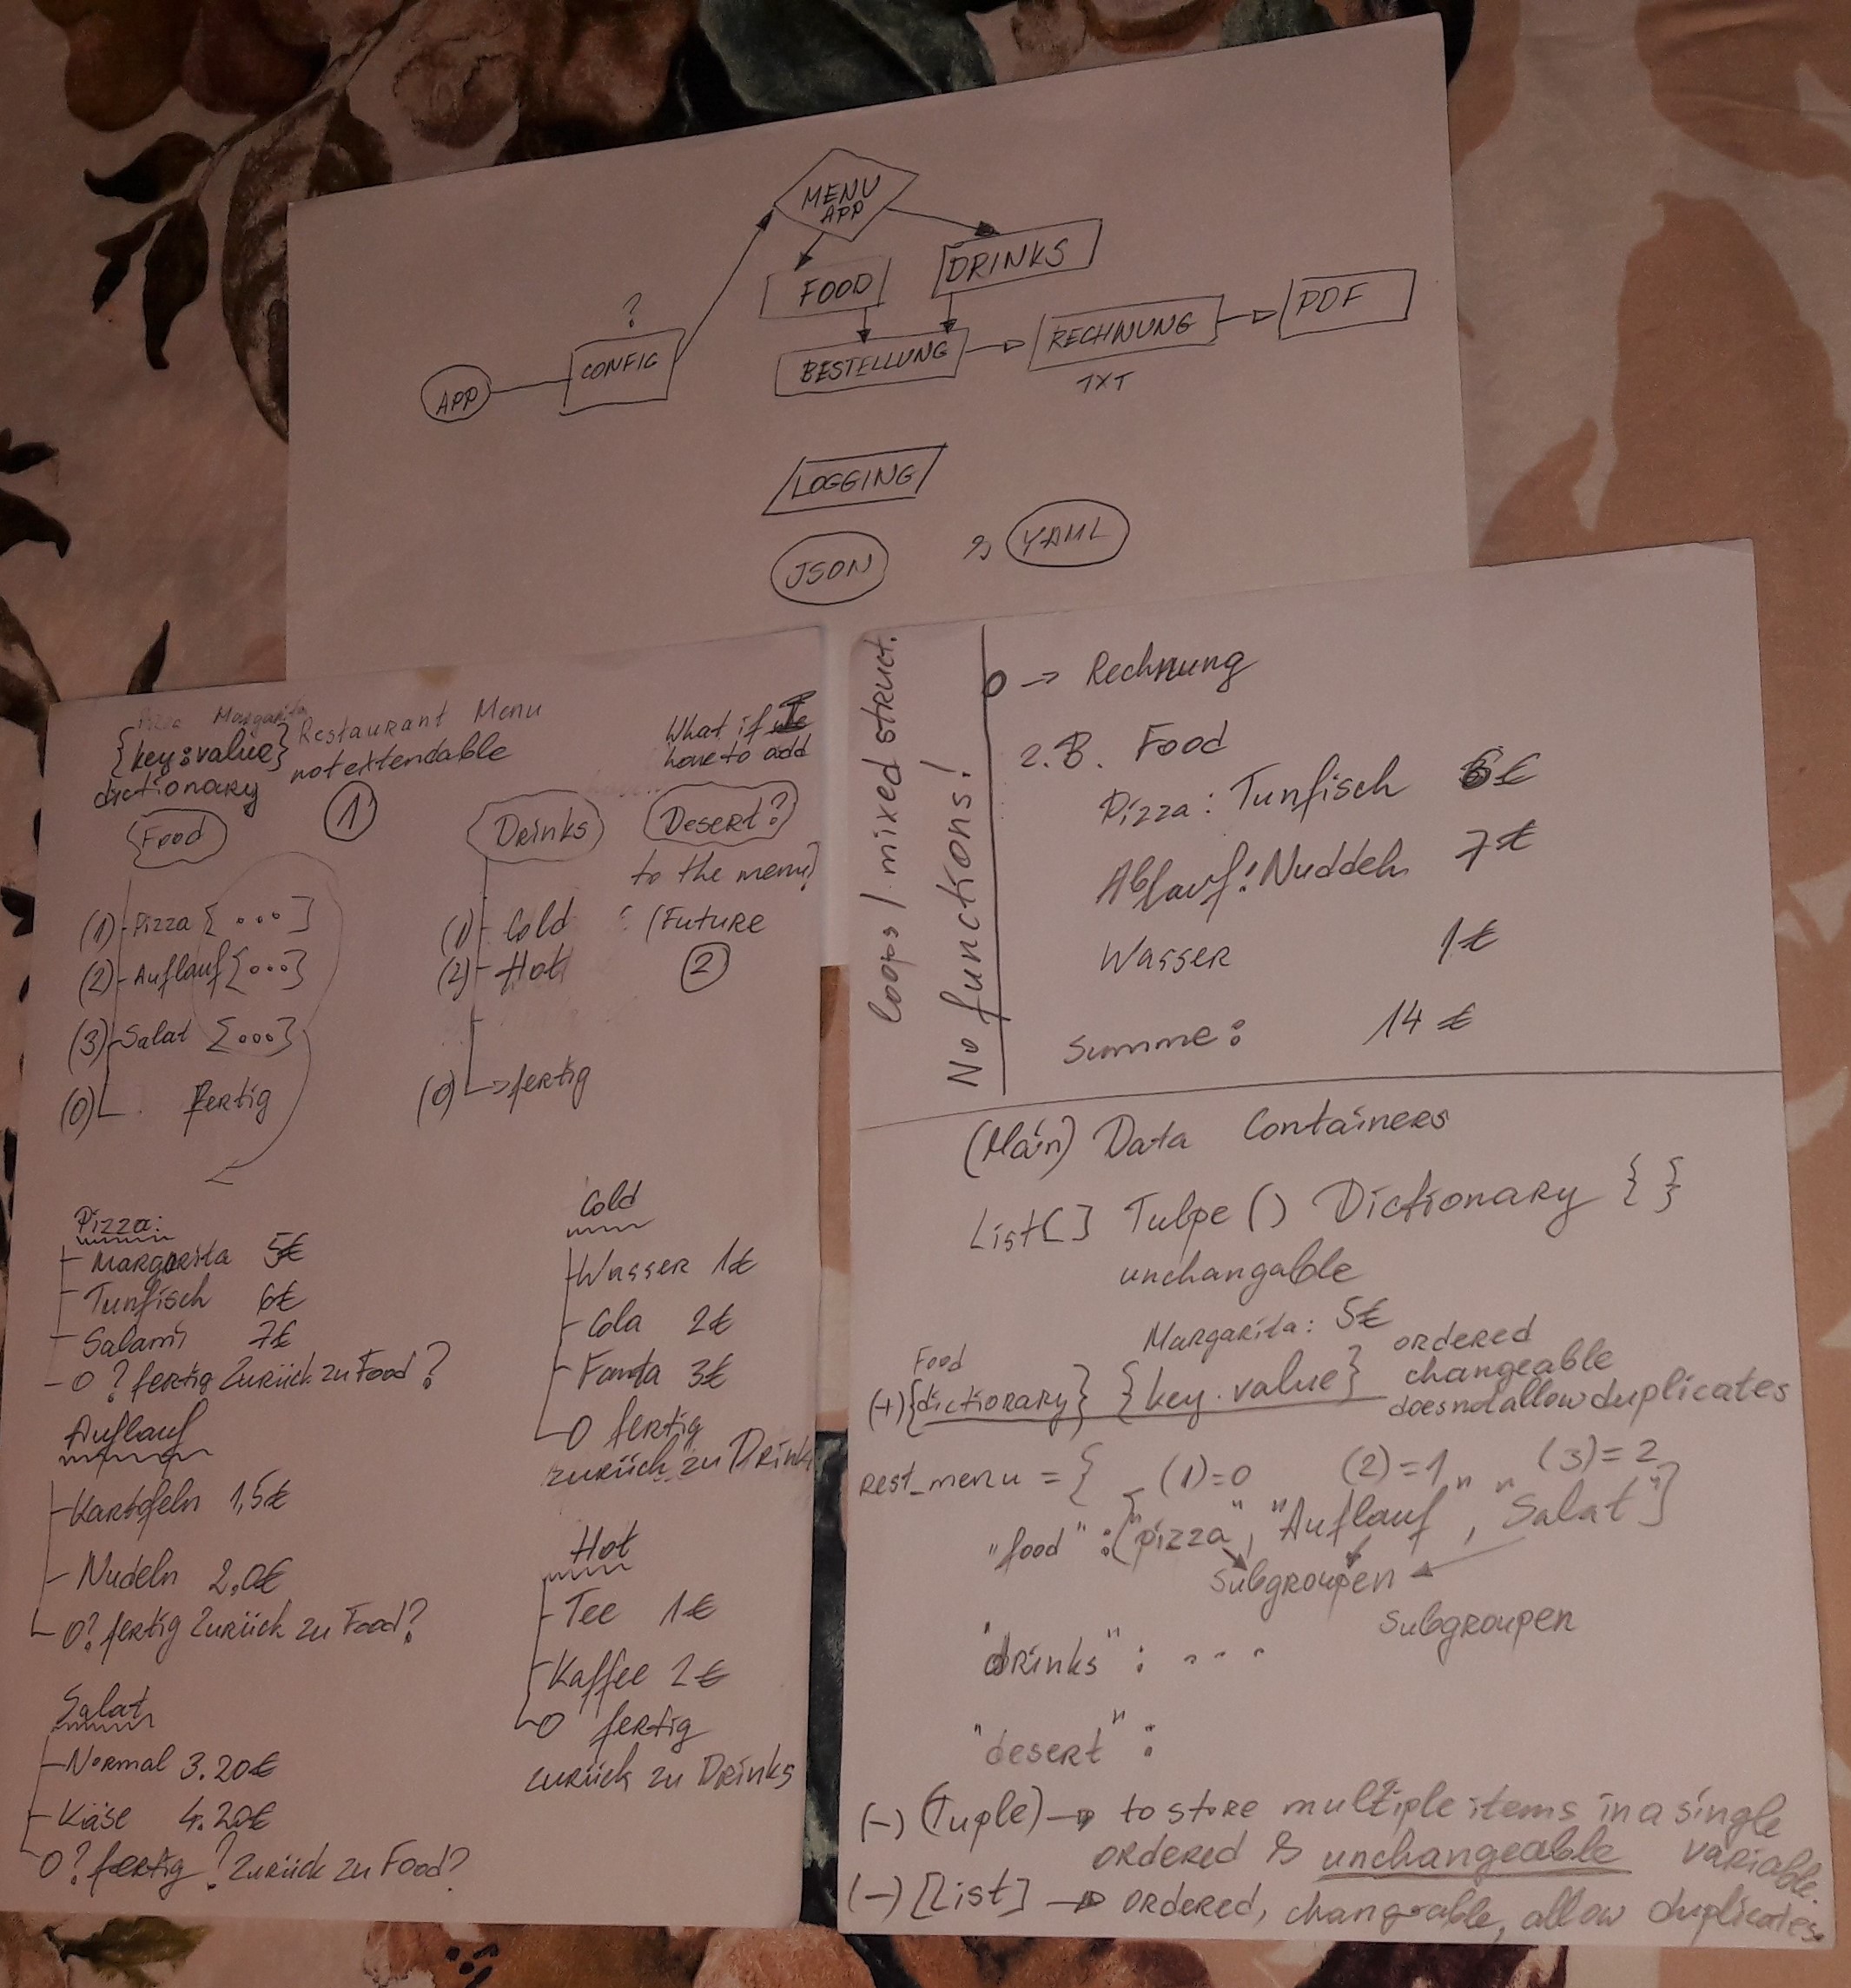 MENU
APP
FOOD
DRINKS
?
APP
CONFIG
BESTELLUNG
RECHNUNG
PDF
TXT
LOGGING
JSON
YAML
Pizza Margarita
{key:value}
dictionary
Restaurant Menu
not extendable
1
What if I
have to add
Food
Drinks
Desert?
to the menu?
(Future
2
(1) Pizza [...]
(2) Auflauf [...]
(3) Salat [...]
(0) fertig
(1) Cold
(2) Hot
(0) → fertig
Pizza:
Margarita 5€
Tunfisch 6€
Salami 7€
0? fertig Zurück zu Food?
Auflauf
Kartofeln 1,5€
Nudeln 2,0€
0? fertig Zurück zu Food?
Salat
Normal 3.20€
Käse 4.20€
0? fertig? Zurück zu Food?
Cold
Wasser 1€
Cola 2€
Fanta 3€
0 fertig
zurück zu Drinks
Hot
Tee 1€
Kaffee 2€
0 fertig
zurück zu Drinks
loops / mixed struct.
No functions!
0 → Rechnung
z.B. Food
Pizza: Tunfisch 6€
Ablauf: Nuddeln 7€
Wasser 1€
Summe: 14€
(Main) Data Containers
List[] Tulpe () Dictionary { }
unchangable
Margarita: 5€
Food
(+){dictionary} {key.value}
ordered
changeable
does not allow duplicates
rest_menu = {
(1)=0 (2)=1 (3)=2
"food" : ["pizza", "Auflauf", "Salat"]
Subgroupen
Subgroupen
"drinks" : ...
"desert" :
(-) (Tuple) → to store multiple items in a single
ordered & unchangeable variable.
(-) [List] → ordered, changeable, allow duplicates.